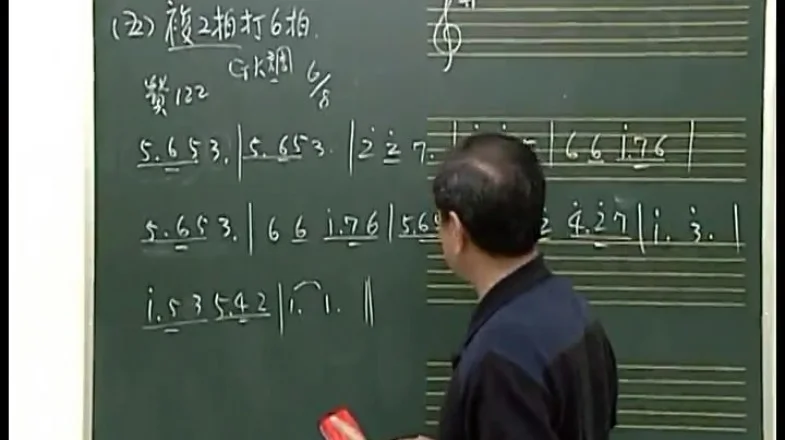 (五) 複2拍打6拍.
G K調 6/8
贊122
5.653.|5.653.|2̇ 2̇ 7.| |6 6 i.76|
5.653.|6 6 i.76|5.65 2 4̇.2̇7|i. 3̇.|
i.53 5.42|i. 1.‖